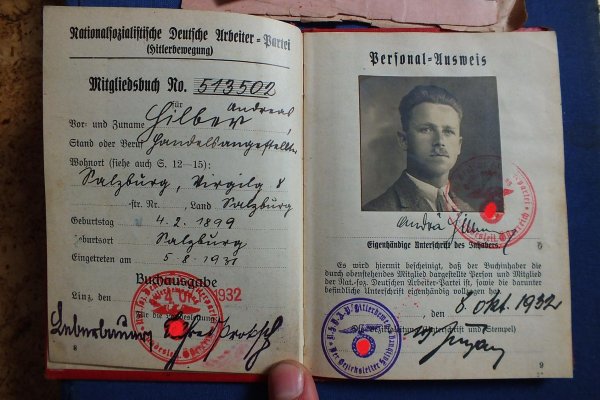 Nationalsozialistische Deutsche Arbeiter-Partei
(Hitlerbewegung)
Mitgliedsbuch No. 513502
für Andreas
Vor- und Zuname Hilber
Stand oder Beruf Handelsangestellter
Wohnort (siehe auch S. 12—15):
Salzburg, Virgilg 8
-str. Nr. Land Salzburg
Geburtstag 4. 2. 1899
Geburtsort Salzburg
Eingetreten am 5. 8. 1931
Buchausgabe
Linz, 1932
Für die
8
Personal-Ausweis
Eigenhändige Unterschrift des Inhabers.
Es wird hiermit bescheinigt, daß der Buchinhaber die
durch obenstehendes Mitglied dargestellte Person und Mitglied
der Nat.-soz. Deutschen Arbeiter-Partei ist, sowie die darunter
befindliche Unterschrift eigenhändig vollzogen hat.
den 8. Okt. 1932
(Unterschrift und Stempel)
N.S.D.A.P. Hitlerbewegung
Der Bezirksleiter Salzburg
9